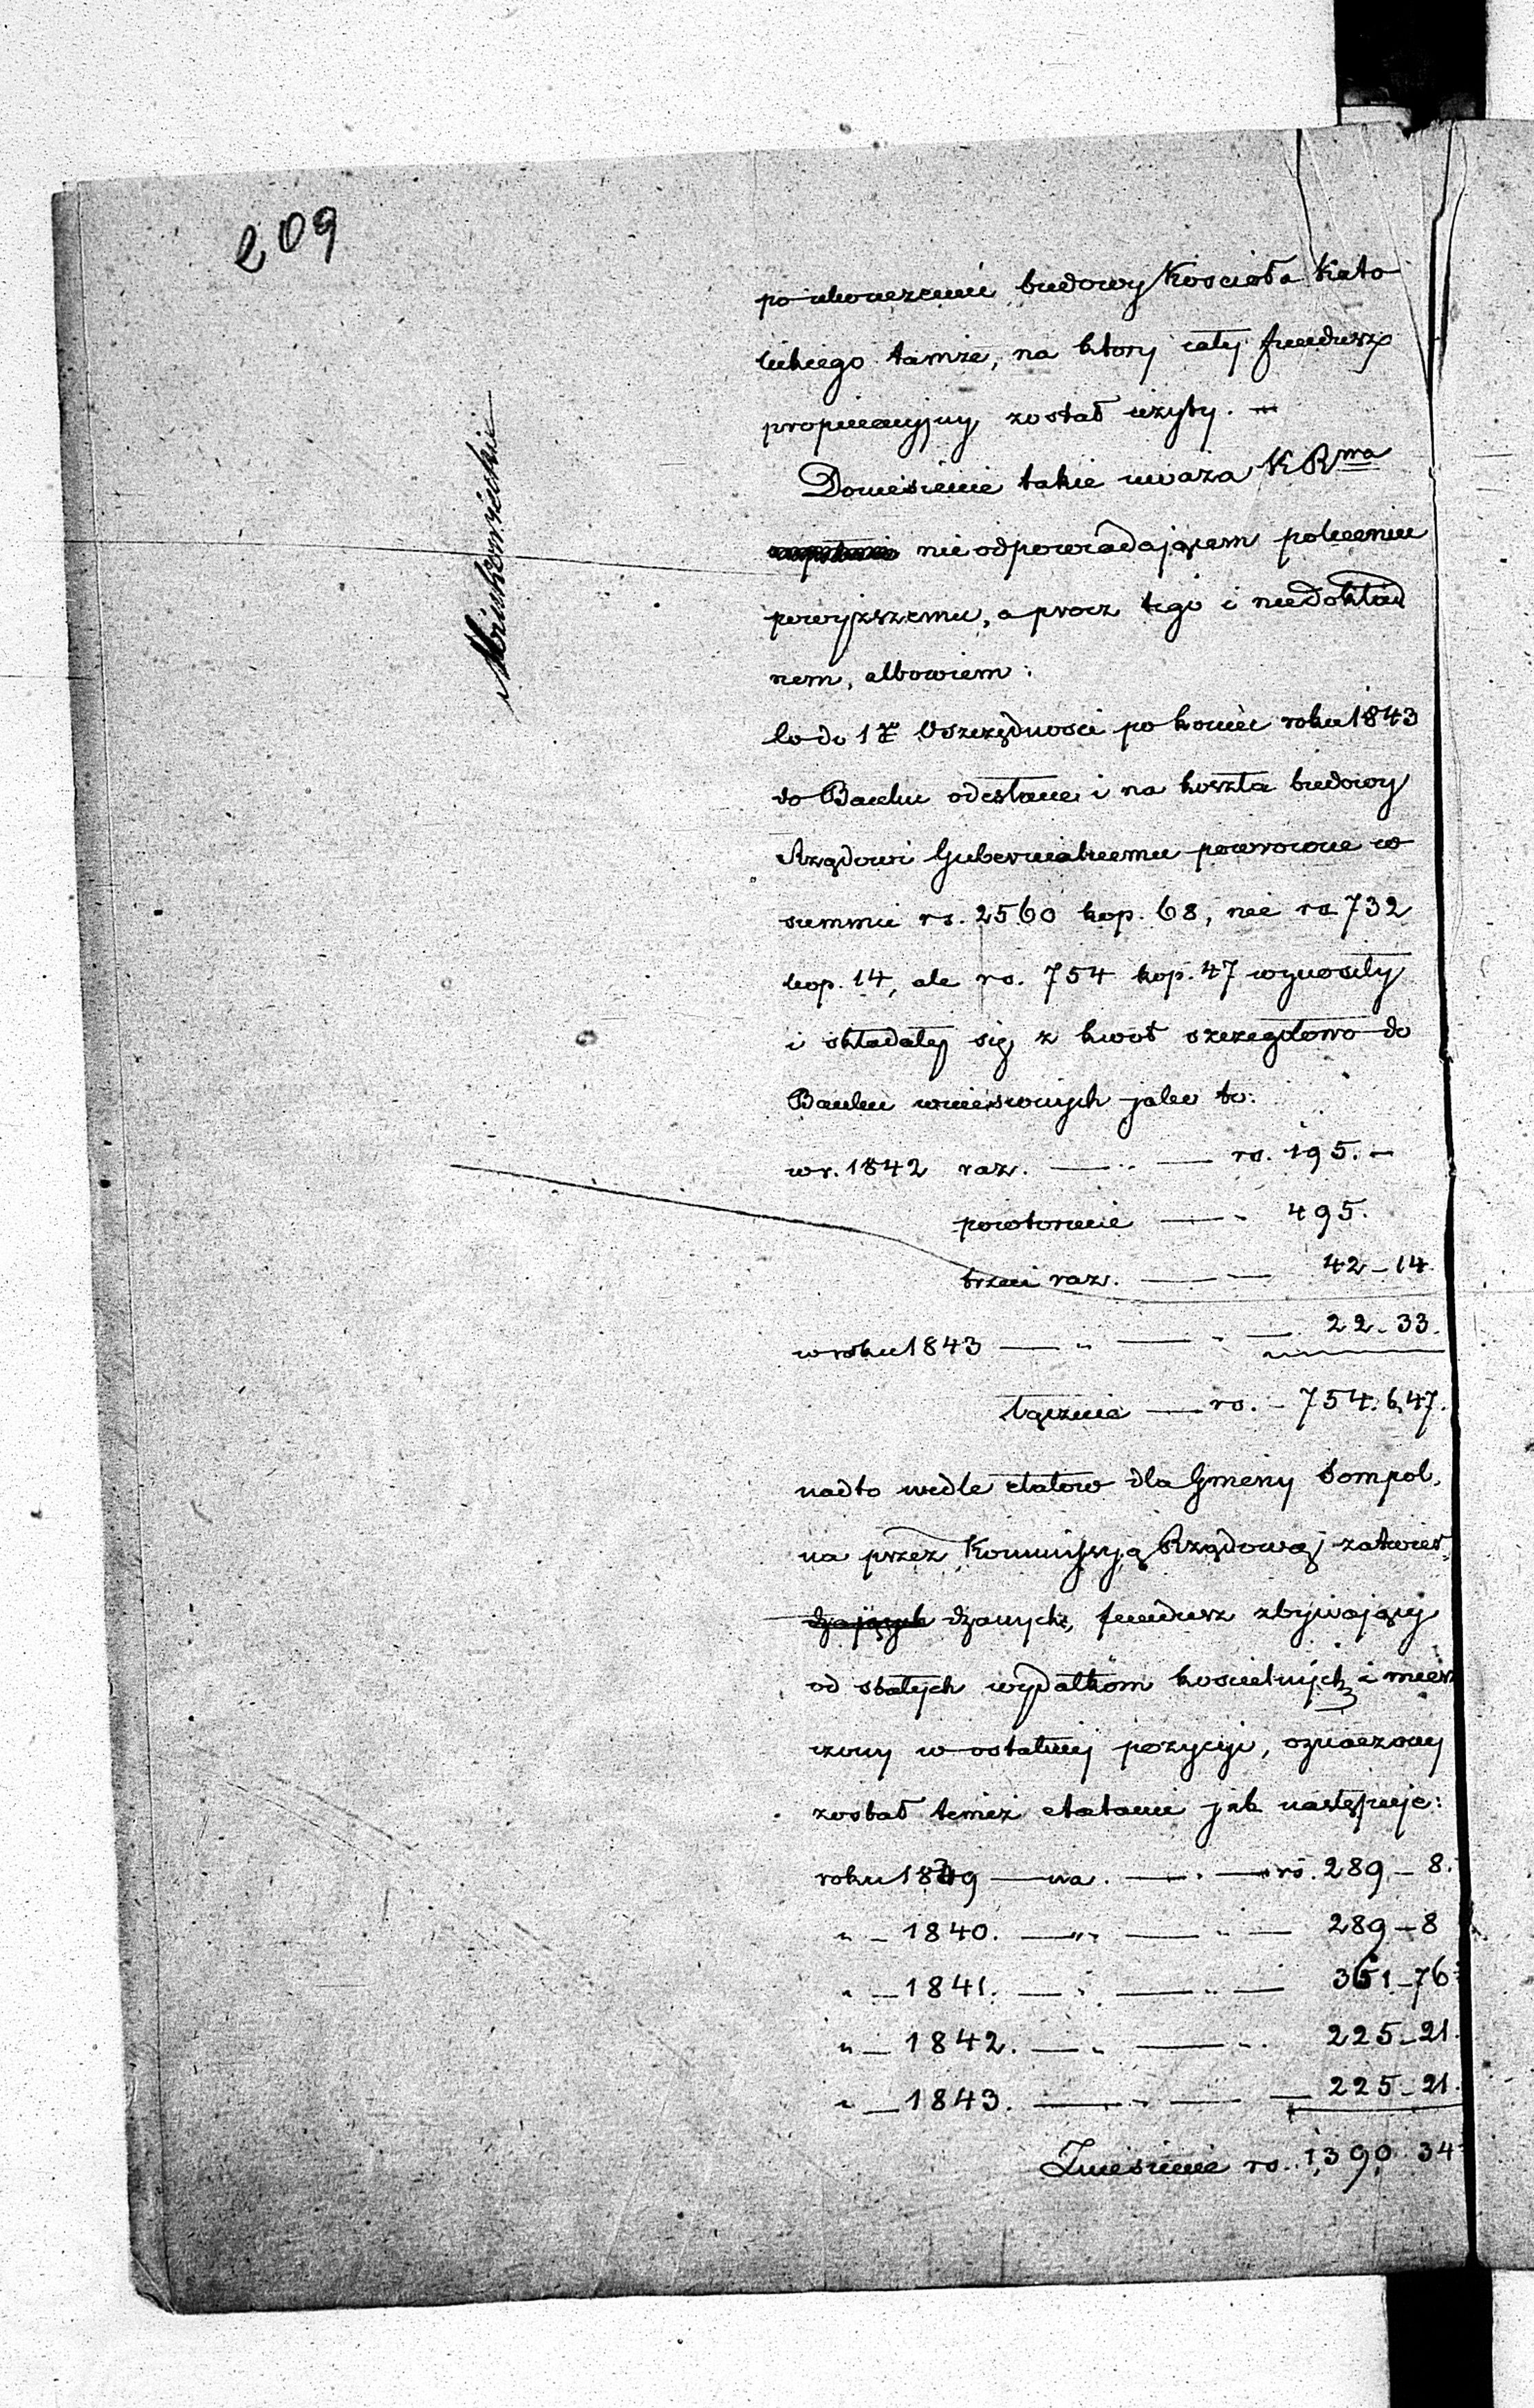 209
po ukonczeniu budowy Kościoła Kato
lickiego tamże, na ktory cały fundusz
propinacyjny został użyty. —
Doniesienie takie uważa K R ma
nieodpowiadającem poleceniu
powyższemu, a procz tego i niedokład
nem, albowiem:
Co do 1º Oszczędnosci po koniec roku 1843
do Banku odesłane i na koszta budowy
Rządowi Gubernialnemu powrocone w
summie rs. 2560 kop. 68, nie rs 732
kop. 14, ale rs. 754 kop. 47 wynosiły
i składały się z kwot szczegołowo do
Banku wniesionych jako to:
w r. 1842 raz. — „ — rs. 195. —
powtornie — „ 495.
trzeci raz. — — 42 – 14.
w roku 1843 — „ — „ — 22 – 33.
łącznie — rs. – 754. k. 47.
nadto wedle etatow dla Gminy Sompol,
na przez Kommissyą Rządową zatwier,
dzających dzanych, fundusz zbywający
od stałych wydatkow koscielnych i miesz
czony w ostatniej pozycyi, oznaczony
został temiż etatami jak następuje:
roku 1839 — na. — . — rs. 289 – 8.
„ – 1840. — „ — „ — 289 – 8
„ – 1841. — „ — „ — 361 – 76
„ – 1842. — „ — „. 225 – 21.
„ – 1843. — „ — — 225 – 21.
Zniesienie rs. 1390 34